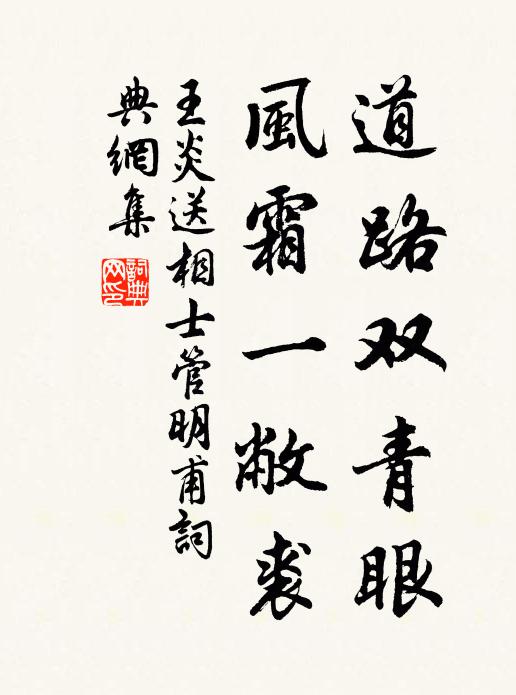 道路双青眼
風霜一敝裘
王炎送相士管明甫詞
典網集
詞典网印